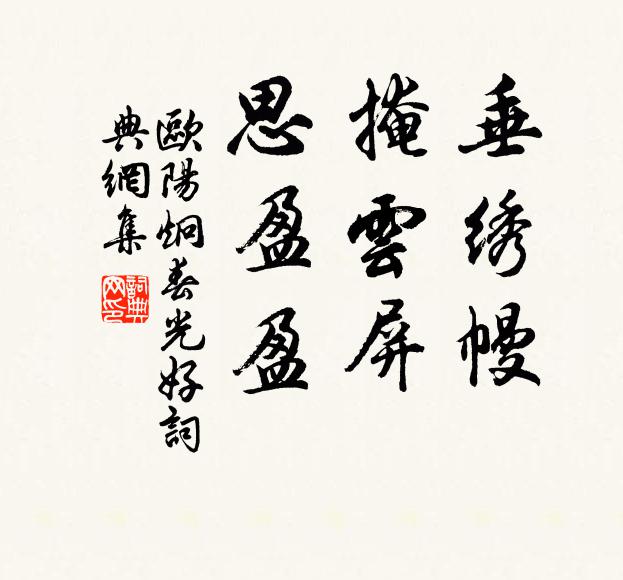 垂绣幔
掩雲屏
思盈盈
歐陽炯春光好詞
典網集
詞典
网印